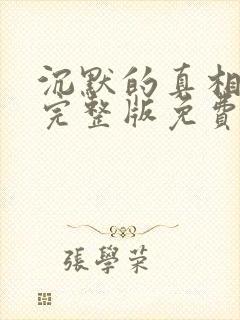 沉默的真相
完整版免費
張學荣